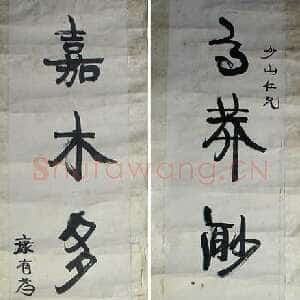 少山仁兄
高莽
嘉木多
康有為
Shufawang.CN